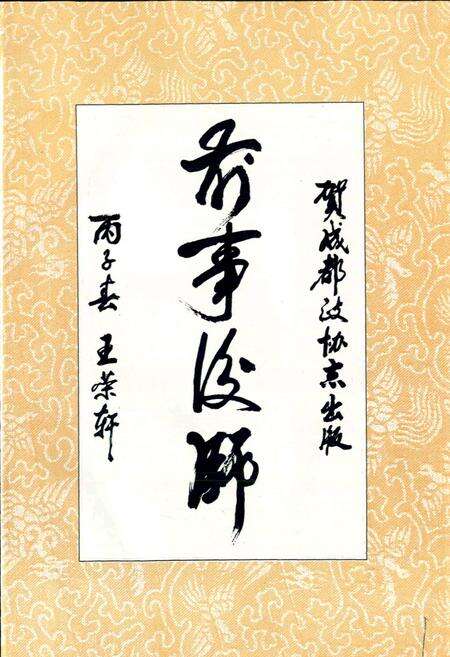 贺成都政协志出版
前事後师
丙子春 王荣轩